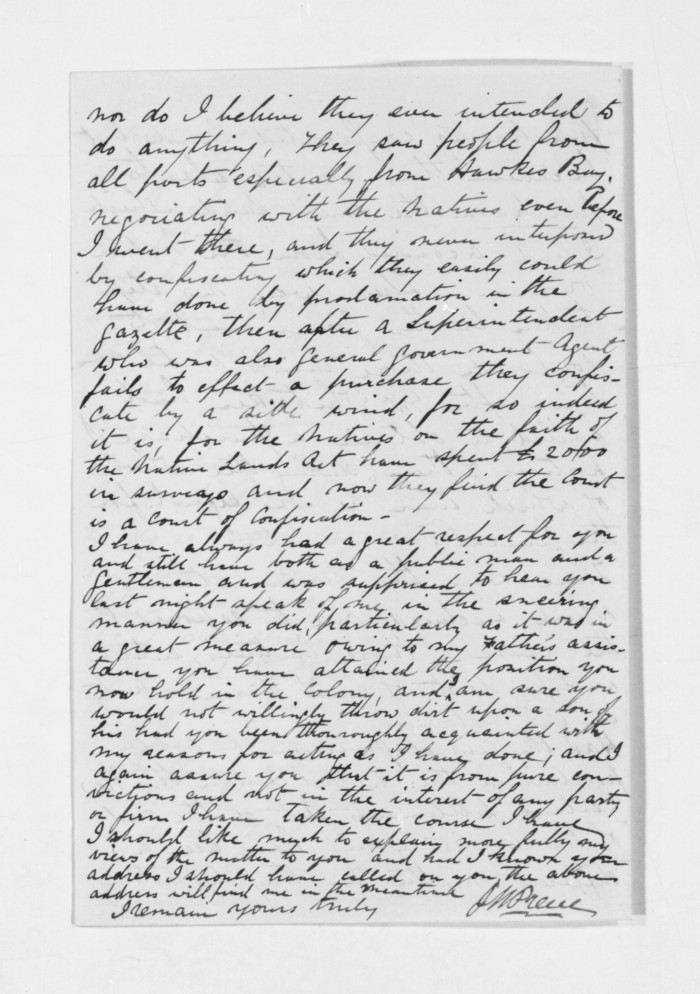 nor do I believe they ever intended to
do anything, They saw people from
all parts especially from Hawkes Bay.
negociating with the Natives even before
I went there, and they never interposed
by confiscating which they easily could
have done by proclamation in the
gazette, then after a Superintendent
who was also General Government Agent
fails to effect a purchase they confis-
cate by a side wind, for so indeed
it is, for the Natives on the faith of
the Native Lands Act have spent £2000
in surveys and now they find the Court
is a Court of Confiscation -
I have always had a great respect for you
and still have both as a public man and a
Gentleman and was supprised to hear you
last night speak of me in the sneering
manner you did, particularly as it was in
a great measure owing to my Father's assis-
tance you have attained the position you
now hold in the Colony, and I am sure you
would not willingly throw dirt upon a son of
his had you been thouroughly acquainted with
my reasons for acting as I have done; and I
again assure you that it is from pure con-
victions and not in the interest of any party
or firm I have taken the course I have
I should like much to explain more fully my
views of the matter to you and had I known your
address I should have called on you, the above
address will find me in the meantime
I remain yours truly